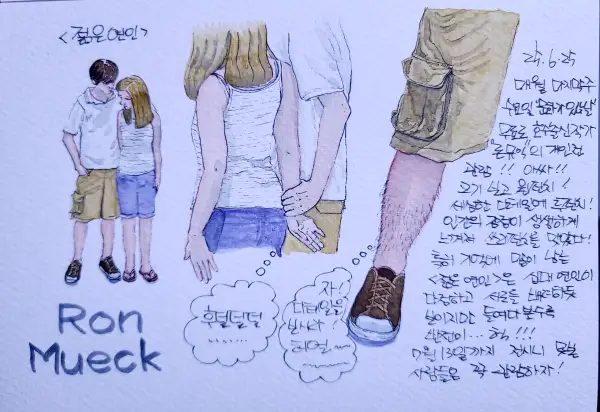 <젊은연인>
Ron
Mueck
후덜덜덜
자!
디테일을
봐라!
25.6.25
매월 마지막주
수요일 '문화가있는날'
무료로 호주출신작가
"론뮤익"의 개인전
관람!! 아싸!!
크기 쉽고
세심한 디테일에
인간의 감정이 생생하게
느껴져
특히 기억에 많이 남는
<젊은 연인>은 십대 연인이
다정하고 서로를 배려하듯
보이지만 들여다볼수록
반전이... 헉!!!
7월 13일까지 전시니 못본
사람들은 꼭 관람하자!